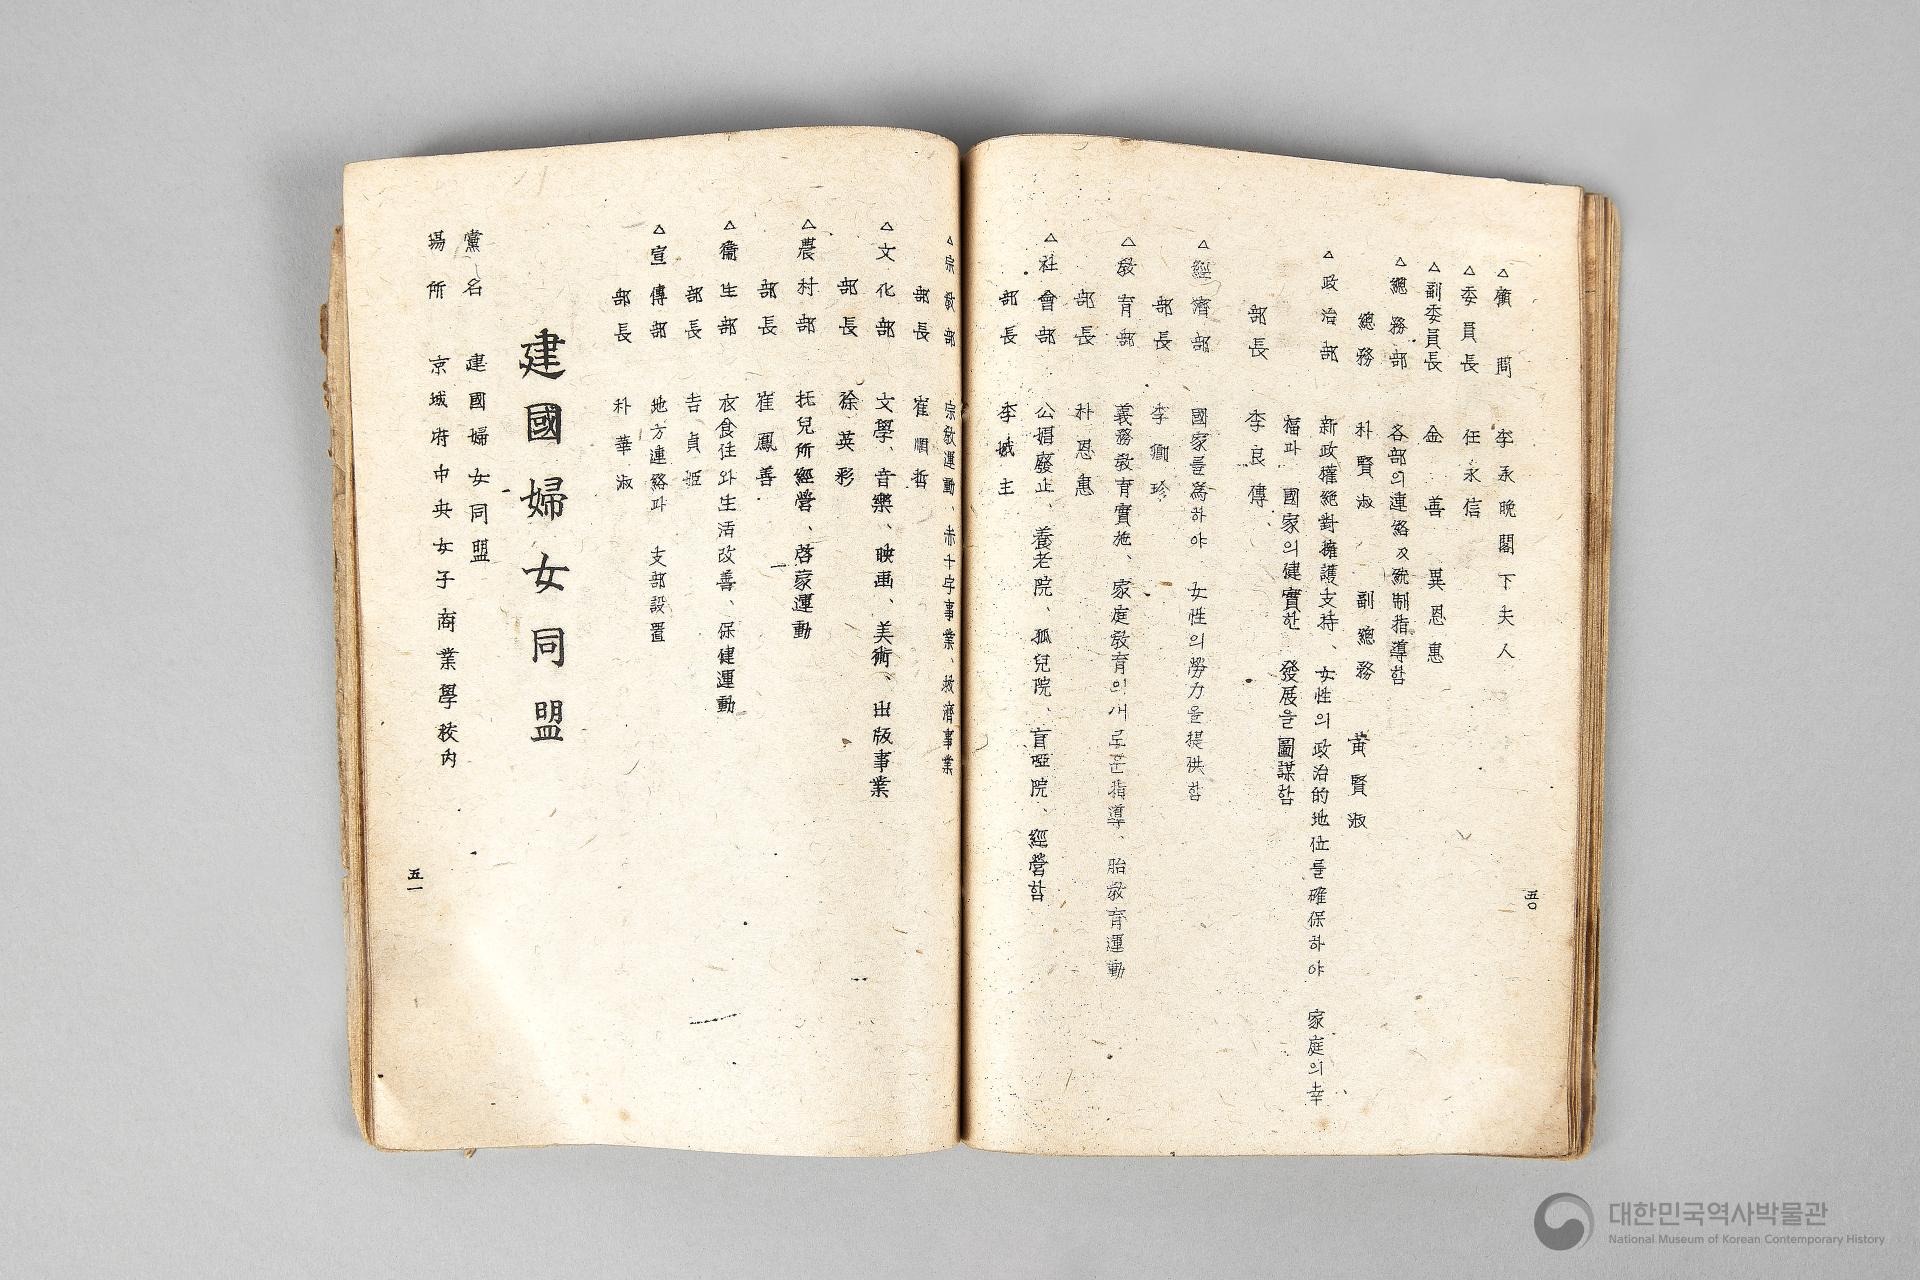 △顧問 李承晩閣下夫人
△委員長 任永信
△副委員長 金善 異恩惠
△總務部 各部의連絡及統制指導함
總務 朴賢淑 副總務 黃賢淑
△政治部 新政權絕對擁護支持、女性의政治的地位를確保하야 家庭의幸
福과 國家의健實한 發展을圖謀함
部長 李良傳
△經濟部 國家를爲하야 女性의勞力을提供함
部長 李卿珍
△敎育部 義務敎育實施、家庭敎育의새로운指導、胎敎育運動
部長 朴恩惠
△社會部 公娼廢止、養老院、孤兒院、盲啞院、經營함
部長 李城主
五〇
△宗敎部 宗敎運動、赤十字事業、救濟事業
部長 崔 哲
△文化部 文學、音樂、映画、美術、出版事業
部長 徐英彩
△農村部 托兒所經營、啓蒙運動
部長 崔鳳善
△衞生部 衣食住와生活改善、保健運動
部長 吉貞姬
△宣傳部 地方連絡과 支部設置
部長 朴華淑
建國婦女同盟
黨名 建國婦女同盟
場所 京城府中央女子商業學校內
五一
대한민국역사박물관
National Museum of Korean Contemporary History